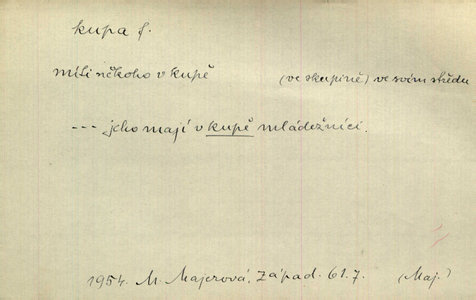 kupa f.
míti někoho v kupě (ve skupině) ve svém středu
--- jeho mají v kupě mládežníci.
1954. M. Majerová, Západ. 61.7. (Maj.)